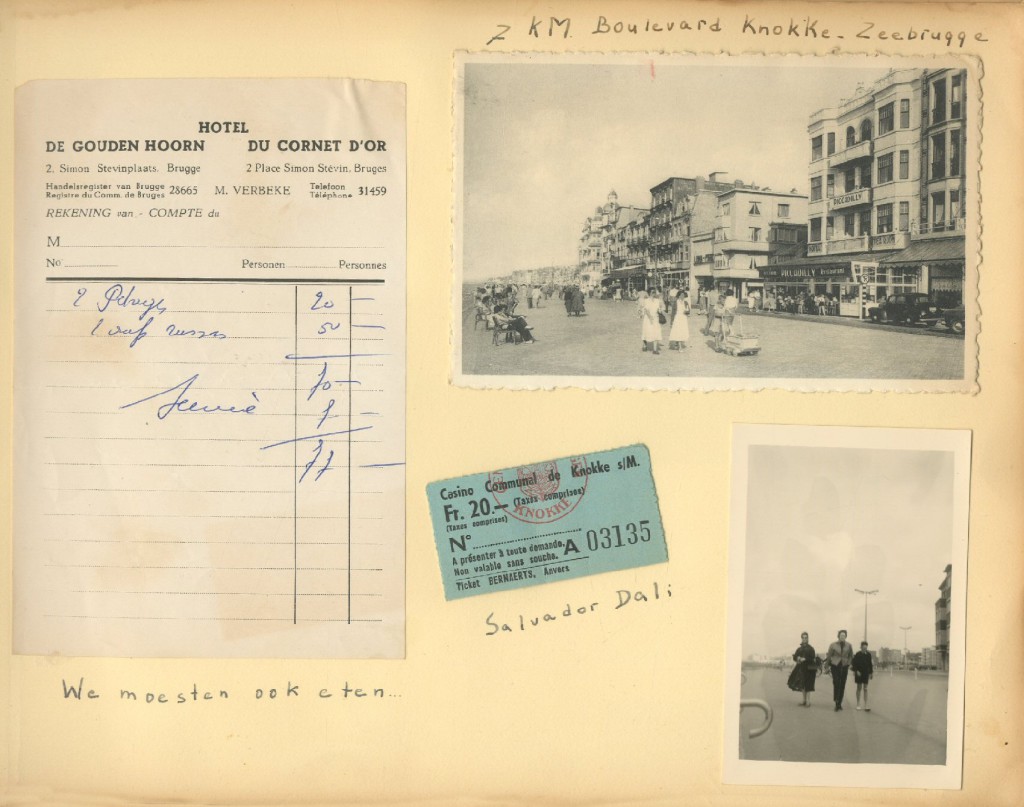 7 KM Boulevard Knokke - Zeebrugge
HOTEL
DE GOUDEN HOORN DU CORNET D'OR
2, Simon Stevinplaats, Brugge 2 Place Simon Stévin, Bruges
Handelsregister van Brugge
Registre du Comm. de Bruges 28665 M. VERBEKE Telefoon
Téléphone 31459
REKENING van - COMPTE du
M
No Personen Personnes
2 20 —
50 —
70 —
7 —
77 —
We moesten ook eten...
PICCADILLY
PICCADILLY Restaurant
Casino Communal de Knokke s/M.
Fr. 20.— (Taxes comprises)
(Taxes comprises)
KNOKKE
N°
A présenter à toute demande.
Non valable sans souche. A 03135
Ticket BERNAERTS, Anvers
Salvador Dali